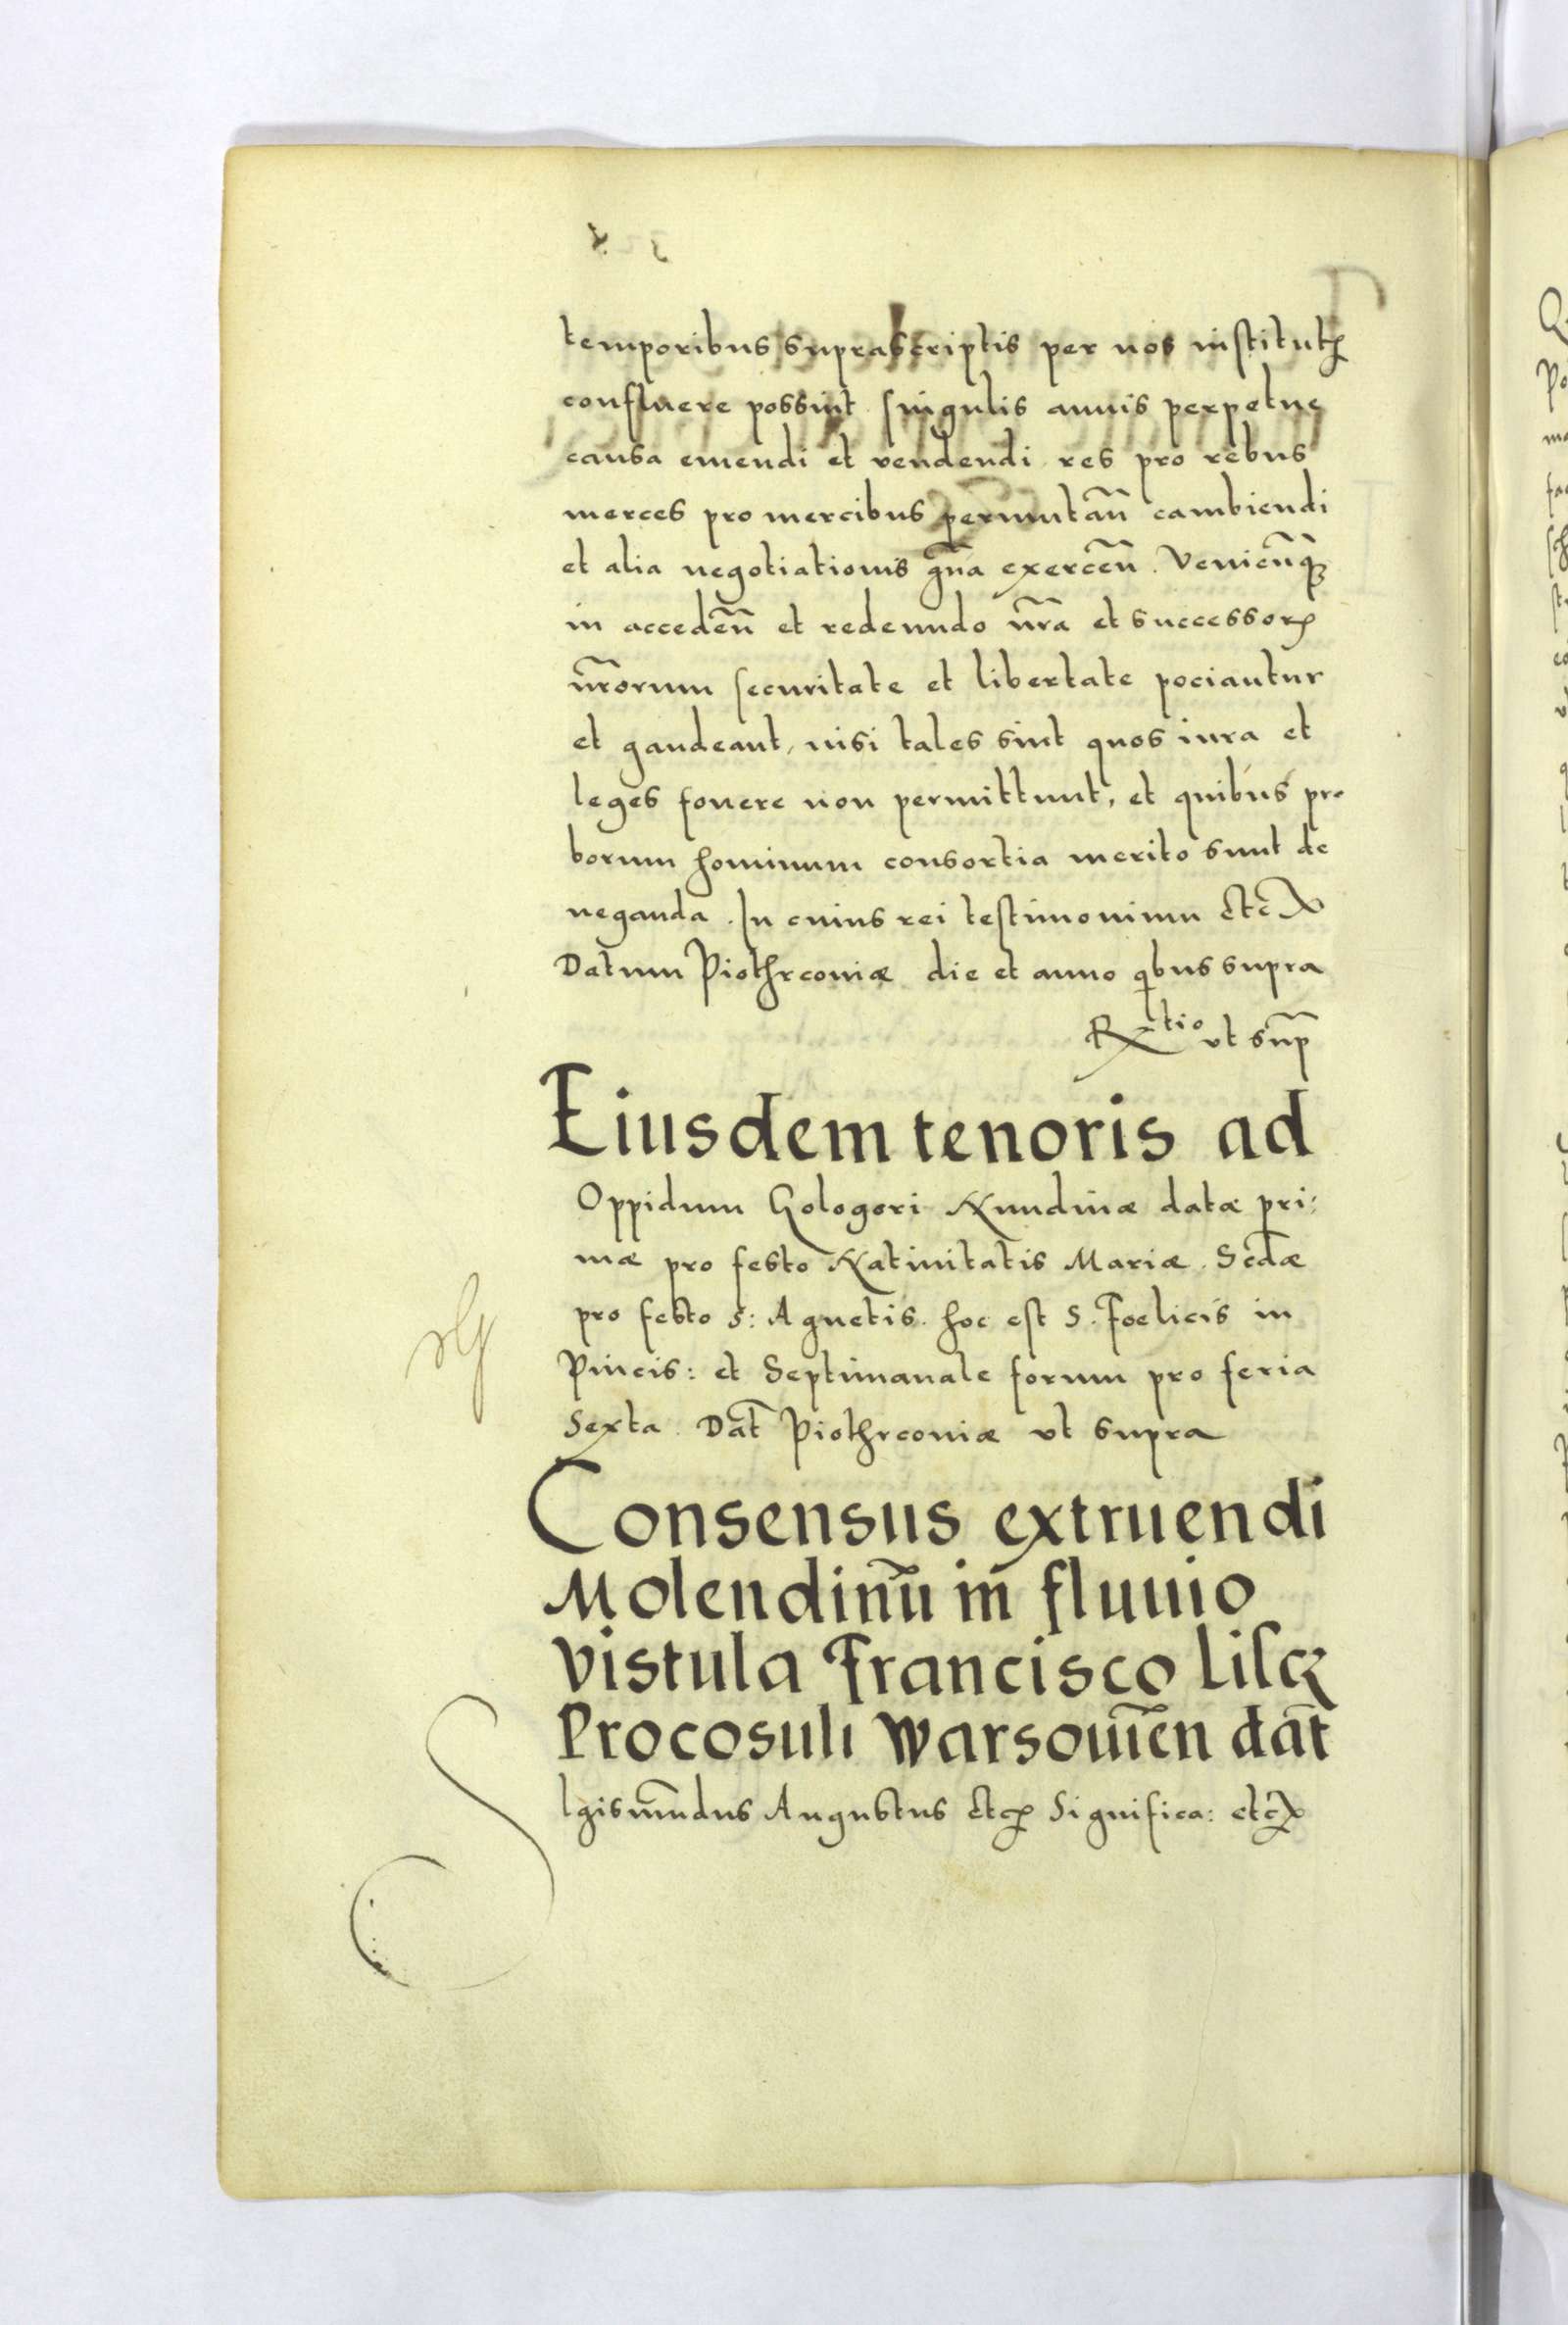 temporibus suprascriptis per nos institutꝭ
confluere possint singulis annis perpetue
causa emendi et vendendi res pro rebus
merces pro mercibus permutan̄ cambiendi
et alia negotiationis gn̄a exercen̄. Venien̄qꝫ
in acceden̄ et redeundo nr̄a et successorꝭ
nr̄orum securitate et libertate pociantur
et gaudeant, nisi tales sint quos iura et
leges fouere non permittunt, et quibus pro
borum hominum consortia merito sunt de
neganda. In cuius rei testimonium etc̄
Datum Piothrconiæ die et anno qibus supra
Rtio vt sup̄
Eiusdem tenoris ad
Oppidum Gologori Nundinæ datæ pri:
mæ pro festo Natiuitatis Mariæ. Scd̄æ
pro festo S: Agnetis. hoc est S. Foelicis in
Pincis: et Septimanale forum pro feria
Sexta. Dat̄ Piothrconiæ vt supra
Consensus extruendi
Molendinū in fluuio
Vistula Francisco Liscꝫ
Procosuli Warsouien̄ dat̄
SIgismūndus Augustus etcꝭ Significa: etcꝭ